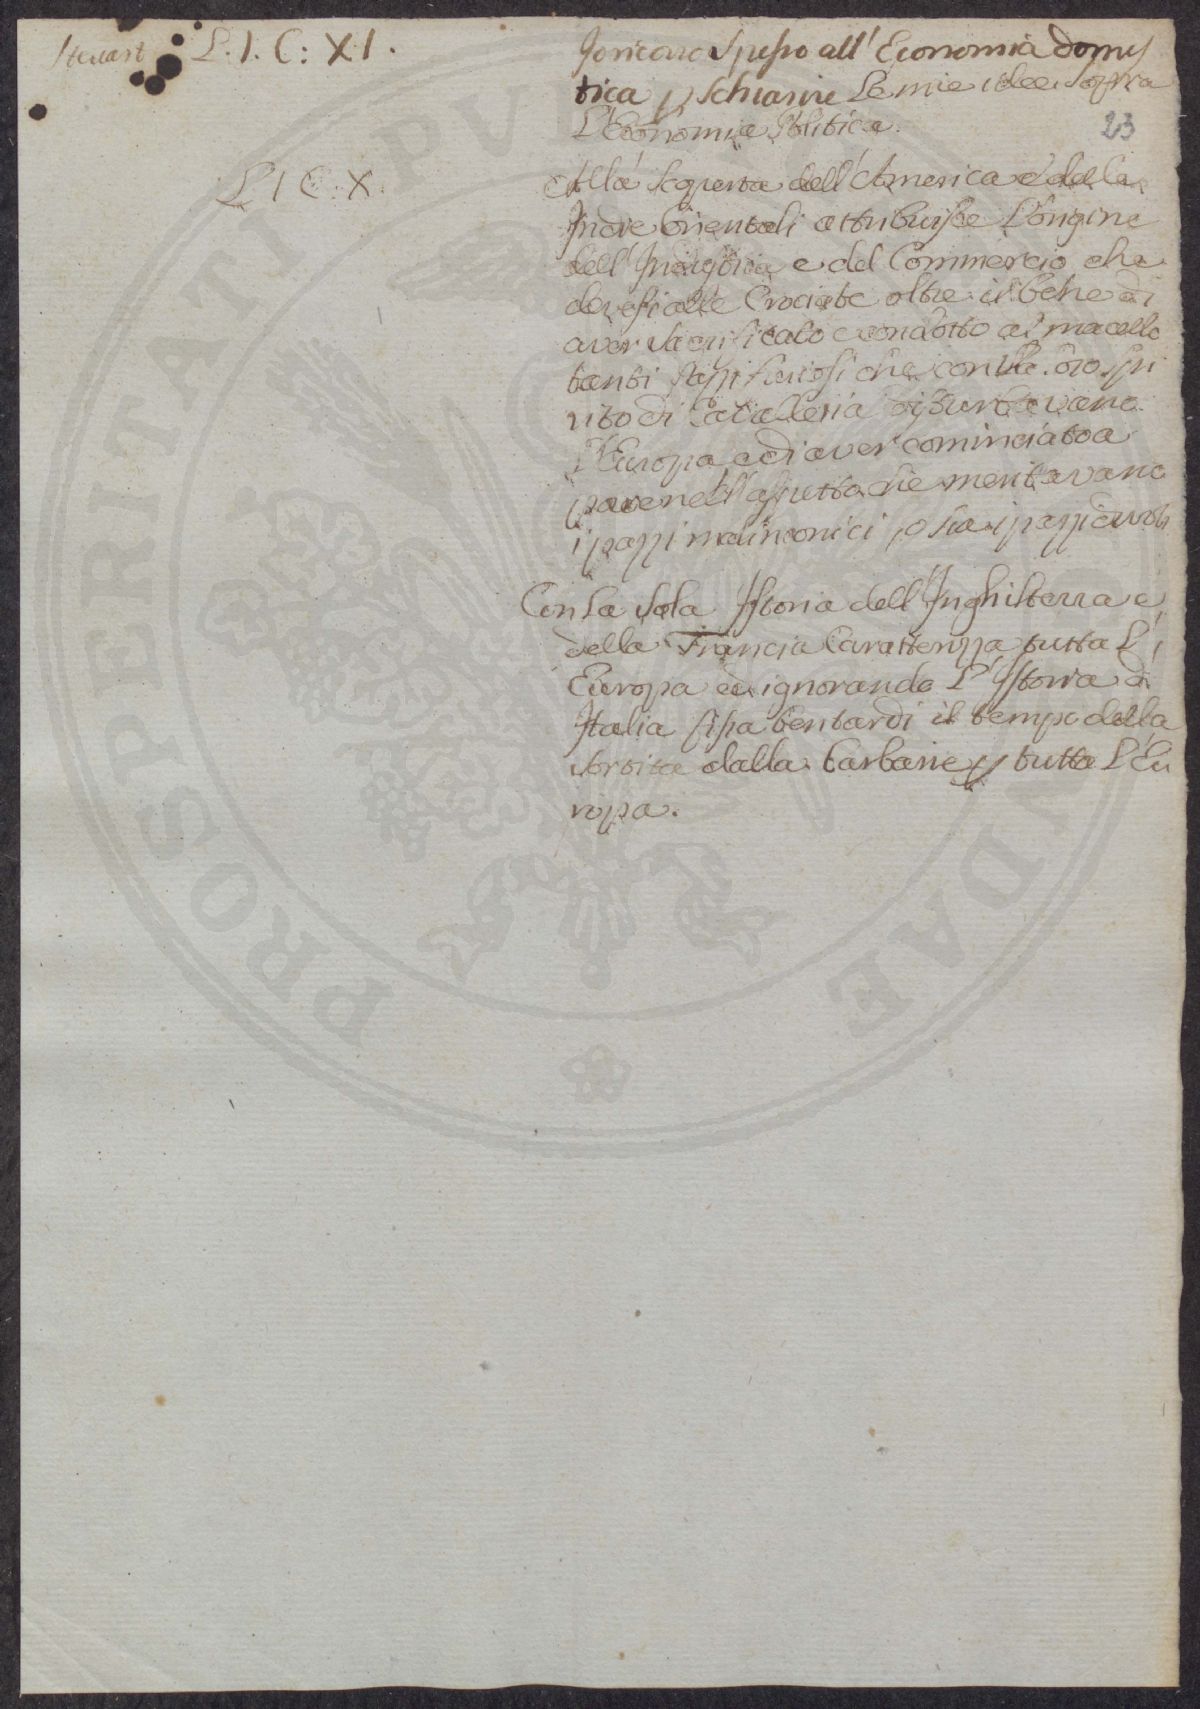 Steuart L. 1. C: XI.
Io ricorro spesso all' Economia domes
tica p schiarire le mie idee sopra
L'Economia Politica.
23
L 1 C: X.
Alla scoperta dell'America e dalle
Indie orientali attribuisce l'origine
dell'Industria e del Commercio che
devesi alle Crociate oltre il bene di
aver sacrificato e condotto al macello
tanti pazzi furiosi che con il loro spi
rito di Cavalleria disturbavano
l'Europa e di aver cominciato a
porre nell'aspetto che meritavano
i pazzi malinconici, o sia i pazzi devoti
Con la sola Istoria dell'Inghilterra e
della Francia Caratterizza tutta L'
Europa ed ignorando L'Istoria d'
Italia fissa ben tardi il tempo della
sortita dalla barbarie p tutta L'Eu
ropa.
PROSPERITATI PVBLICAE